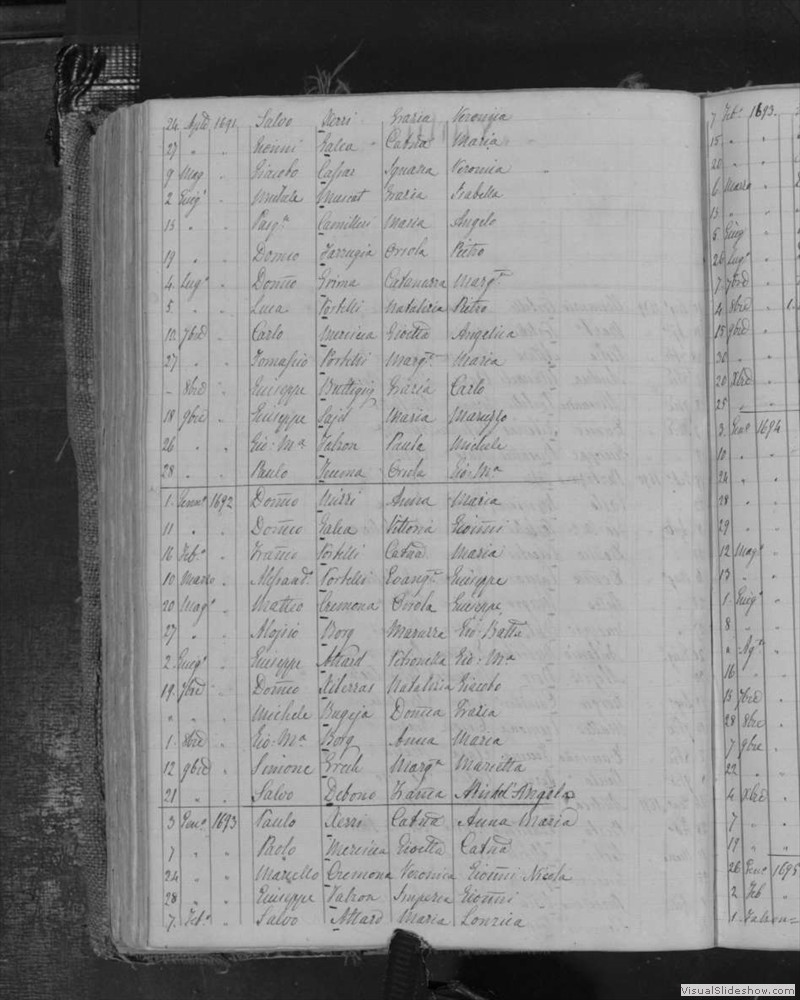 24 Aple 1691 Salvo Xerri Grazia Veronica
27 " " Gionni Galea Catña Maria
9 Mag " Giacobo Cassar Ignazia Veronica
2 Giug° " Michele Muscat Grazia Isabella
15 " " Pasq.a Camilleri Maria Angelo
19 " " Domco Farrugia Orsola Pietro
4 Lug° " Domco Grima Catarina Marg.a
5 " " Luca Portelli Natalizia Pietro
10 7bre " Carlo Mercieca Gioetta Angelica
27 " " Tomasso Portelli Marg.a Maria
- 8bre " Giuseppe Buttigieg Grazia Carlo
18 9bre " Giuseppe Said Maria Maruzzo
26 " " Gio: Ma Vatron Paula Michele
28 " " Paulo Orsola Gio: Ma
1 Genn° 1692 Domco Mizzi Anna Maria
11 " " Domco Galea Vittoria Gionni
16 Feb° " Franco Portelli Catñā Maria
10 Marzo " Portelli Evangta Giuseppe
20 Mag° " Matteo Cremona Orsola Giuseppe
27 " " Alojsio Borg Maruzza Gio: Batta
2 Giug° " Giuseppe Attard Petronella Gio: Ma
19 7bre " Domco Xiberras Natalizia Giacobo
" " " Michele Bugeja Domca Grazia
1 8bre " Gio: Ma Borg Anna Maria
12 9bre " Simone Grech Marga Marietta
21 " " Salvo Debono Franca Michel'Angelo
3 Gen° 1693 Paulo Xerri Catña Anna Maria
7 " " Paolo Mercieca Gioetta Catña
24 " " Marcello Cremona Veronica Gionni Nicola
28 " " Giuseppe Vatron Imperia Gionni
7 Feb° " Salvo Attard Maria Lonzica
7 Feb° 1693
15 " "
20 " "
6 Marzo "
15 " "
5 Giug "
26 Lug° "
7 7bre "
4 8bre "
15 9bre "
20 " "
20 Xbre "
25 "
3 Gen° 1694
10 " "
24 " "
28 " "
29 " "
12 Mag° "
13 " "
1 Giug° "
8 " "
" Ag° "
16 " "
15 7bre "
28 8bre "
7 9bre "
22 " "
4 Xbre "
7 " "
19 " "
26 Gen° 1695
2 Feb "
VisualSlideshow.com